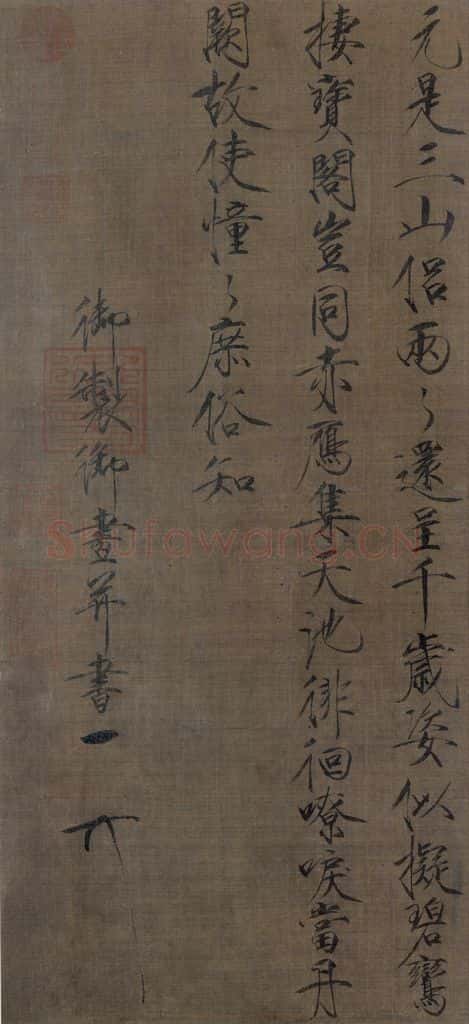 元是三山侣兩〻還呈千歲姿似擬碧鸞
捿寶閣豈同赤鴈集天池徘徊嘹唳當丹
闕故使憧〻庶俗知
御製御畫并書
Shufawang.CN